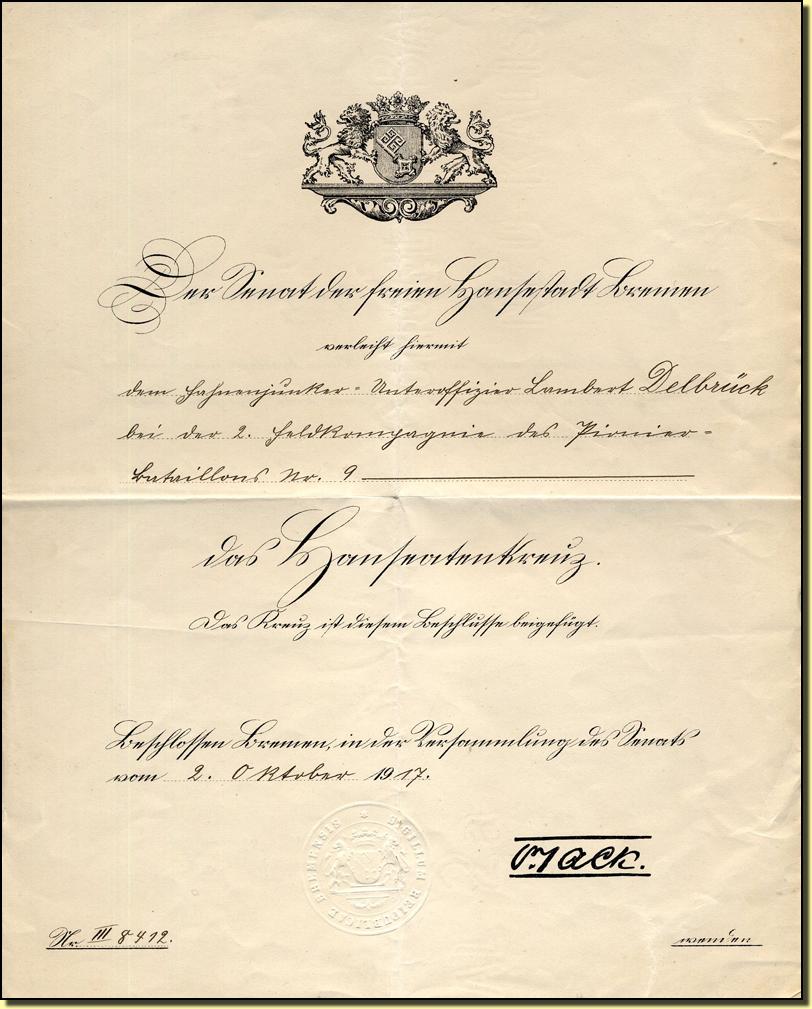 Der Senat der freien Hansestadt Bremen
verleiht hiermit
dem Fahnenjunker-Unteroffizier Lambert Delbrück
bei der 2. Feldkompagnie des Pionier-
Bataillons Nr. 9
das Hanseatenkreuz.
Das Kreuz ist diesem Beschlusse beigefügt.
Beschlossen Bremen, in der Versammlung des Senats
vom 2. Oktober 1917.
SIGILLUM REIPUBLICÆ BREMENSIS
Nr. III 8412.
wenden